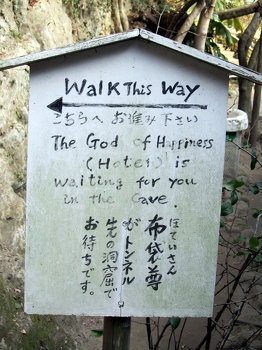 Walk This Way
こちらへ お進み下さい
The God of Happiness
(Hotei) is
waiting for you
in the Cave.
ほていさん
布袋尊
がトンネル
先の洞窟で
お待ちです。